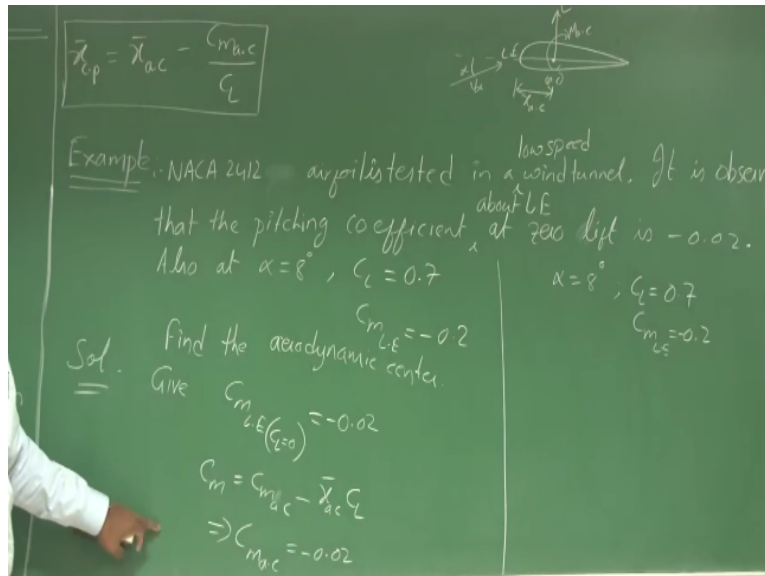 x̄c.p = x̄ac - Cma.c / CL
L
Ma.c
LE
a.c
V∞
x̄a.c
Example:- NACA 2412 airfoil is tested in a low speed wind tunnel. It is obser
that the pitching coefficient about LE at zero lift is -0.02.
Also at α = 8°, CL = 0.7
CmL.E = -0.2
Find the aerodynamic center.
Sol.
Give CmL.E(CL=0) = -0.02
Cm = Cma.c - x̄ac CL
⇒ Cma.c = -0.02
α = 8°, CL = 0.7
CmLE = -0.2